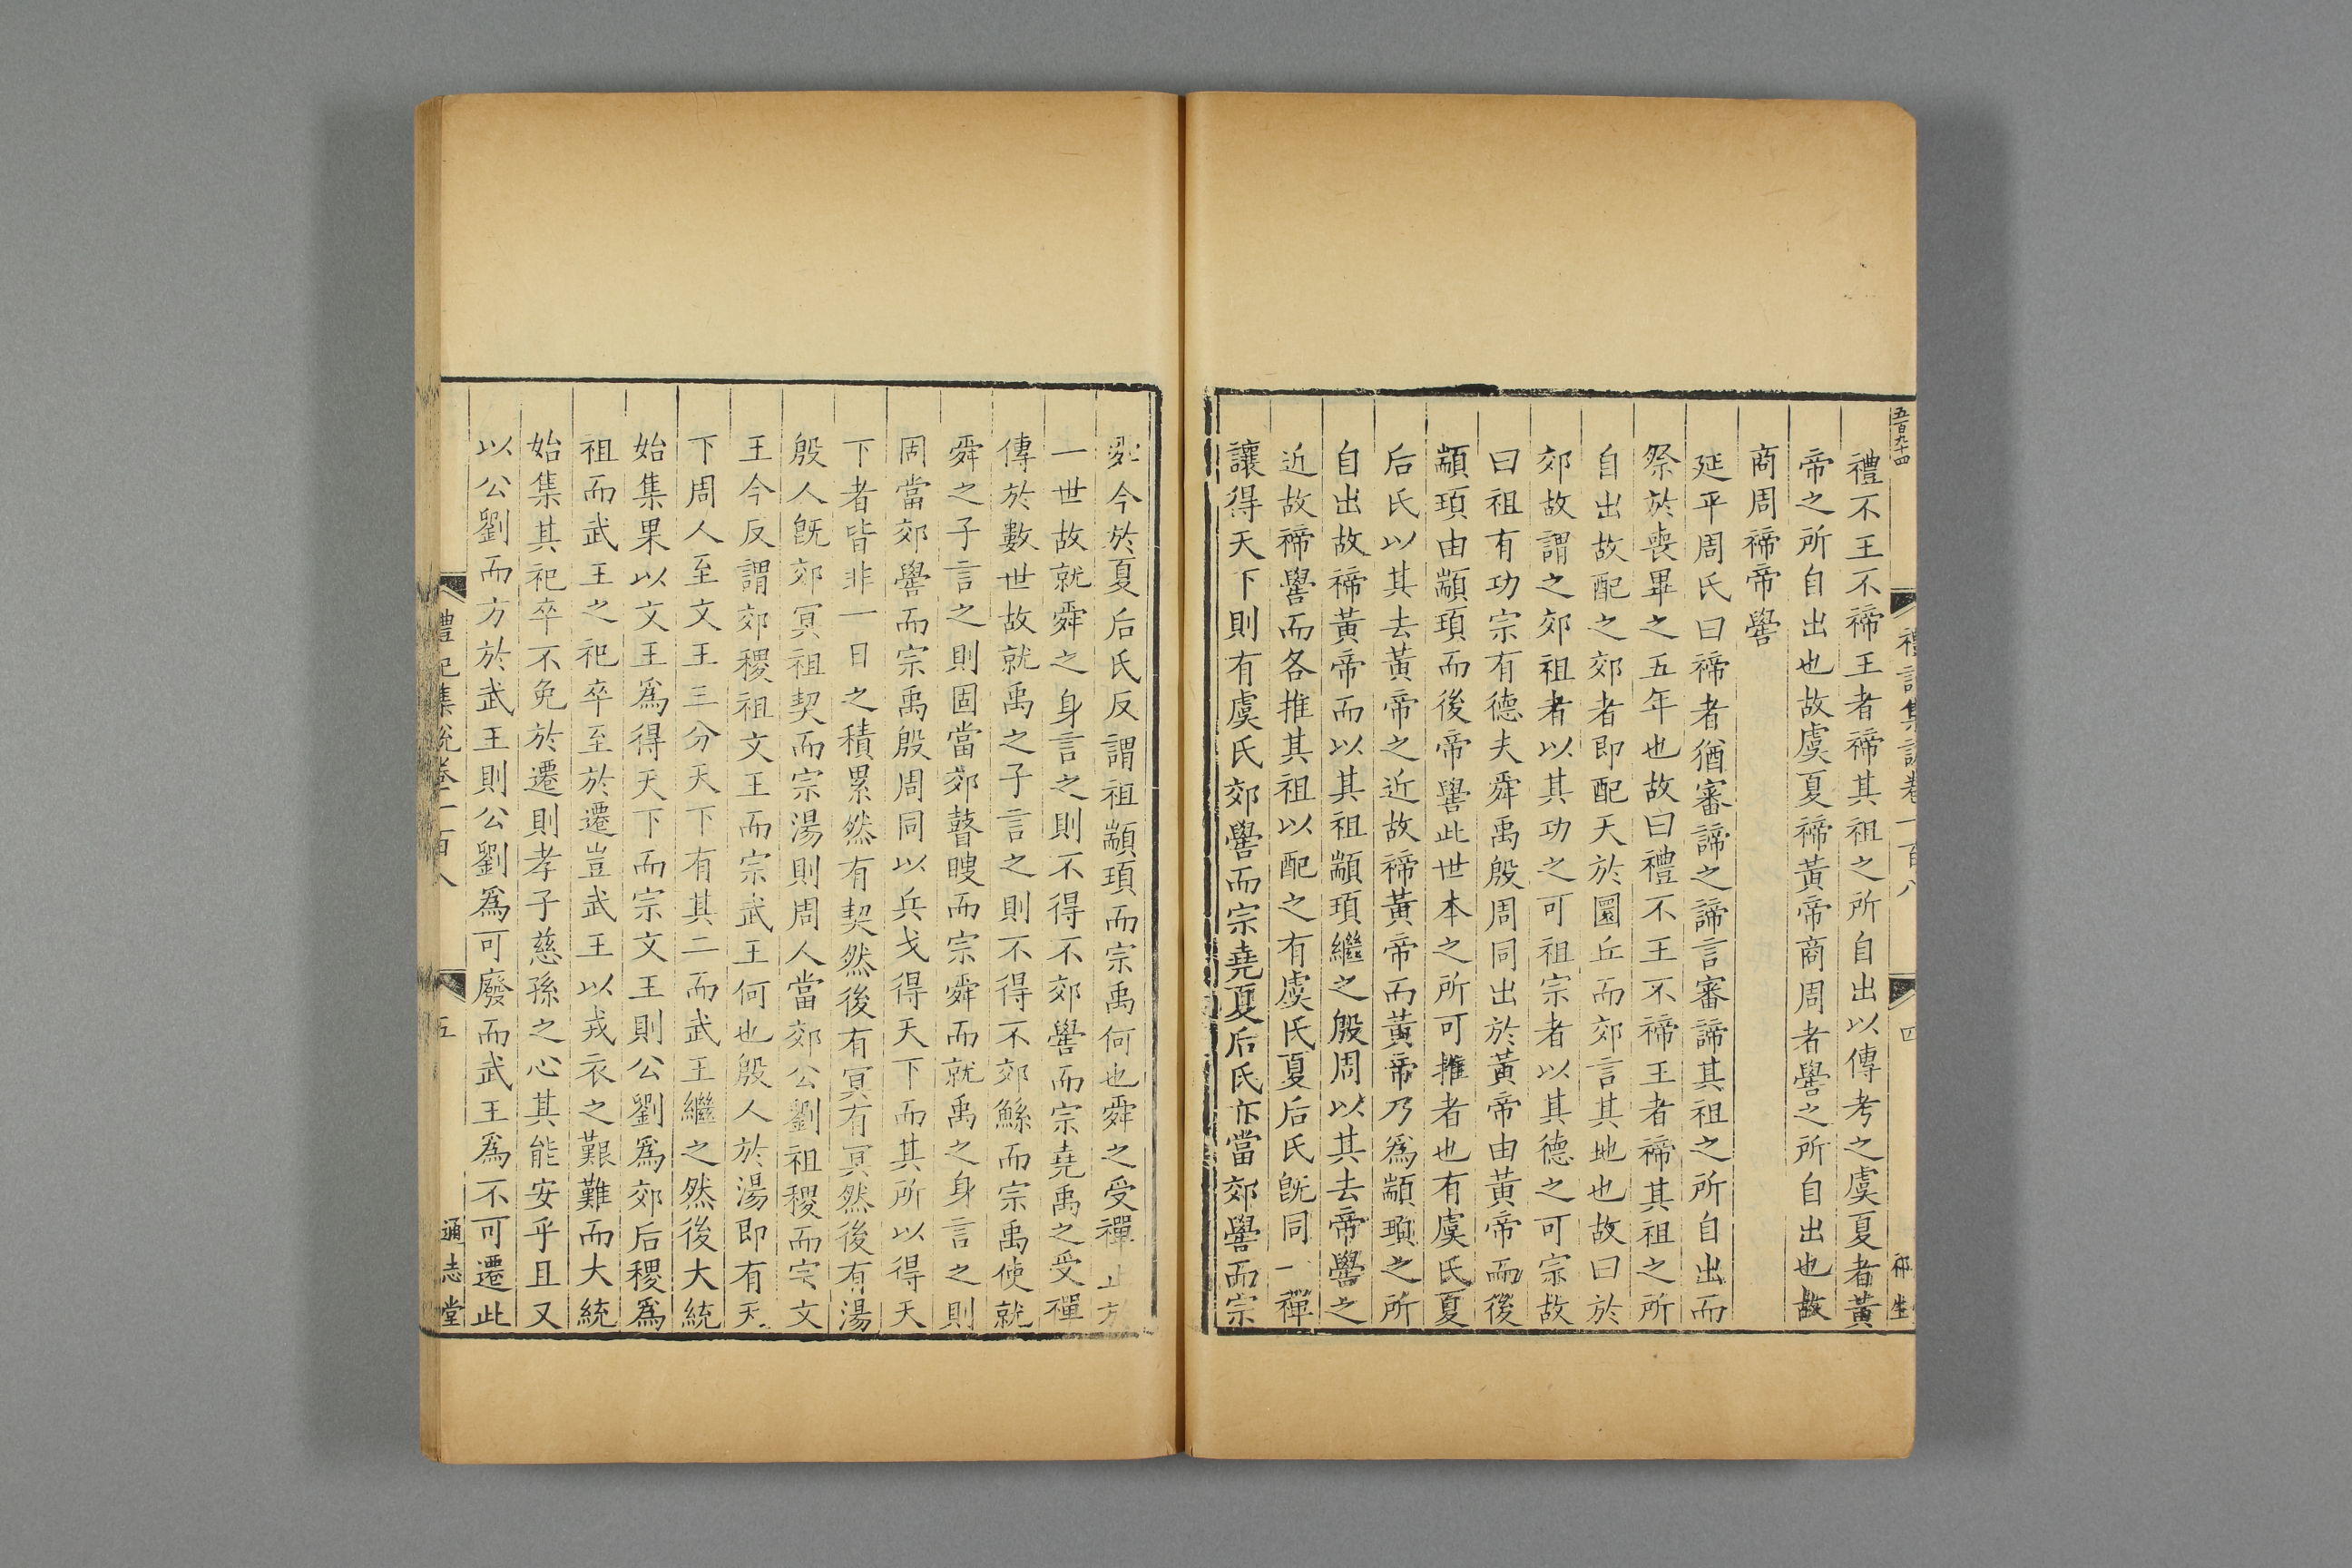 五百九十四
禮記集說卷一百八
四
禮不王不禘王者禘其祖之所自出以傳考之虞夏者黃
帝之所自出也故虞夏禘黃帝商周者嚳之所自出也故
商周禘帝嚳
延平周氏曰禘者猶審諦之諦言審諦其祖之所自出而
祭於喪畢之五年也故曰禮不王不禘王者禘其祖之所
自出故配之郊者即配天於圜丘而郊言其地也故曰於
郊故謂之郊祖者以其功之可祖宗者以其德之可宗故
曰祖有功宗有德夫舜禹殷周同出於黃帝由黃帝而後
顓頊由顓頊而後帝嚳此世本之所可推者也有虞氏夏
后氏以其去黃帝之近故禘黃帝而黃帝乃為顓頊之所
自出故禘黃帝而以其祖顓頊繼之殷周以其去帝嚳之
近故禘嚳而各推其祖以配之有虞氏夏后氏旣同一禪
讓得天下則有虞氏郊嚳而宗堯夏后氏亦當郊嚳而宗
舜今於夏后氏反謂祖顓頊而宗禹何也舜之受禪止於
一世故就舜之身言之則不得不郊嚳而宗堯禹之受禪
傳於數世故就禹之子言之則不得不郊鯀而宗禹使就
舜之子言之則固當郊瞽瞍而宗舜而就禹之身言之則
固當郊嚳而宗禹殷周同以兵戈得天下而其所以得天
下者皆非一日之積累然有契然後有冥有冥然後有湯
殷人旣郊冥祖契而宗湯則周人當郊公劉祖稷而宗文
王今反謂郊稷祖文王而宗武王何也殷人於湯即有天
下周人至文王三分天下有其二而武王繼之然後大統
始集果以文王為得天下而宗文王則公劉為郊后稷為
祖而武王之祀卒至於遷豈武王以戎衣之艱難而大統
始集其祀卒不免於遷則孝子慈孫之心其能安乎且又
以公劉而方於武王則公劉為可廢而武王為不可遷此
禮記集說卷一百八
五
通志堂